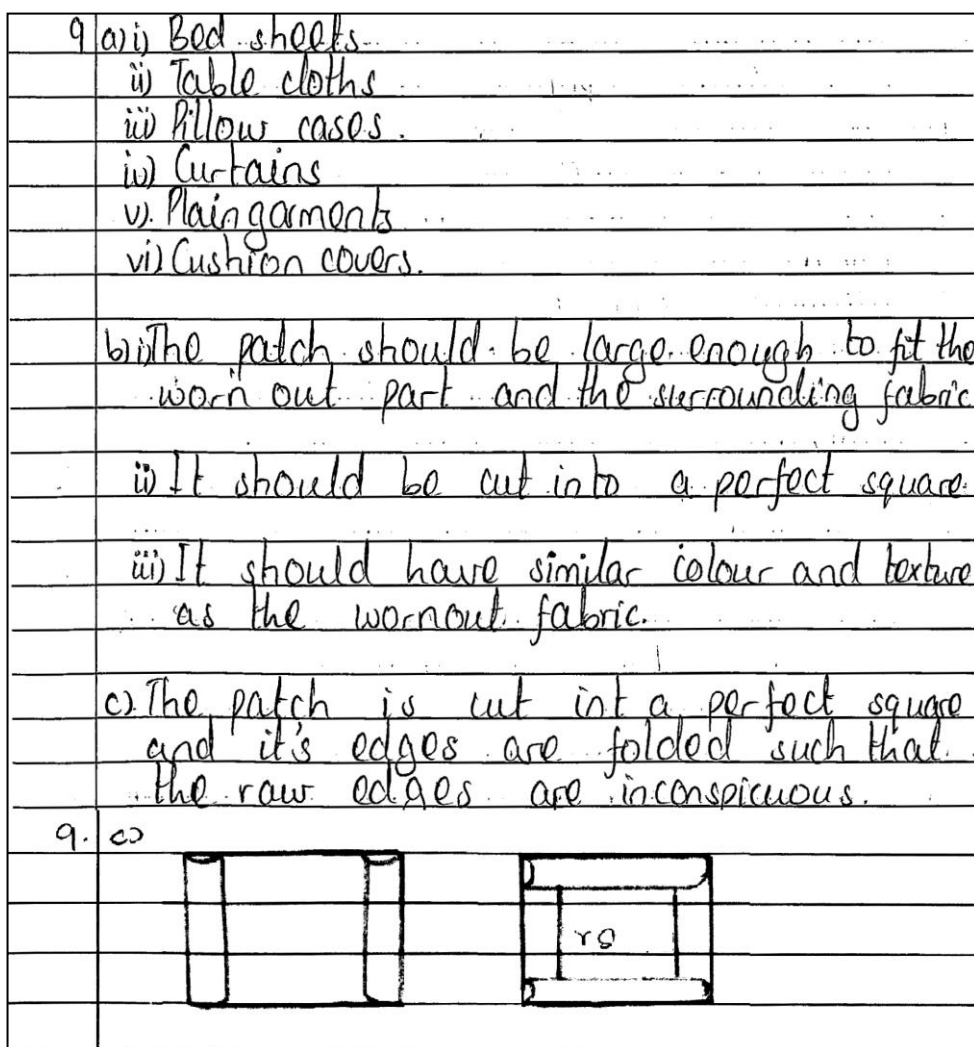 9 a) i) Bed sheets
ii) Table cloths
iii) Pillow cases.
iv) Curtains
v). Plain garments
vi) Cushion covers.
b) i) The patch should be large enough to fit the
worn out part and the surrounding fabric
ii) It should be cut into a perfect square.
iii) It should have similar colour and texture
as the wornout fabric.
c). The patch is cut int a perfect square
and it's edges are folded such that
the raw edges are inconspicuous.
9. c)
rs